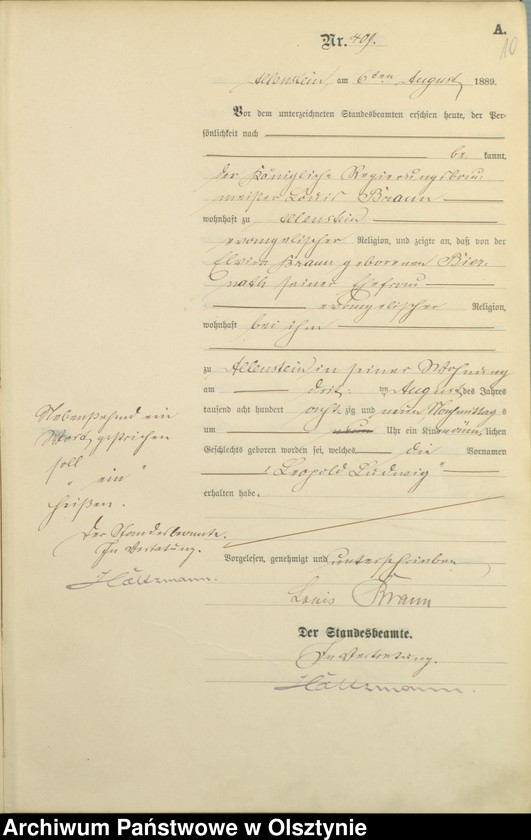 A.
10
Nr. 401.
Allenstein, am 6ten August 1889.
Vor dem unterzeichneten Standesbeamten erschien heute, der Per-
sönlichkeit nach
be kannt,
der Königliche Regierungsbau-
meister Louis Braun
wohnhaft zu Allenstein
evangelischer Religion, und zeigte an, daß von der
Elvira Braun geborenen Bier-
nath seiner Ehefrau
evangelischer Religion,
wohnhaft bei ihm
zu Allenstein in seiner Wohnung
am drit- ten August des Jahres
tausend acht hundert acht zig und neun Nachmittag s
um Uhr ein Kind männ lichen
Geschlechts geboren worden sei, welches die Vornamen
"Leopold Ludwig"
erhalten habe.
Nebenstehend ein
Wort gestrichen
soll
"ein"
heißen.
Der Standesbeamte.
In Vertretung.
Vorgelesen, genehmigt und unterschrieben
Louis Braun
Der Standesbeamte.
In Vertretung.
Archiwum Państwowe w Olsztynie